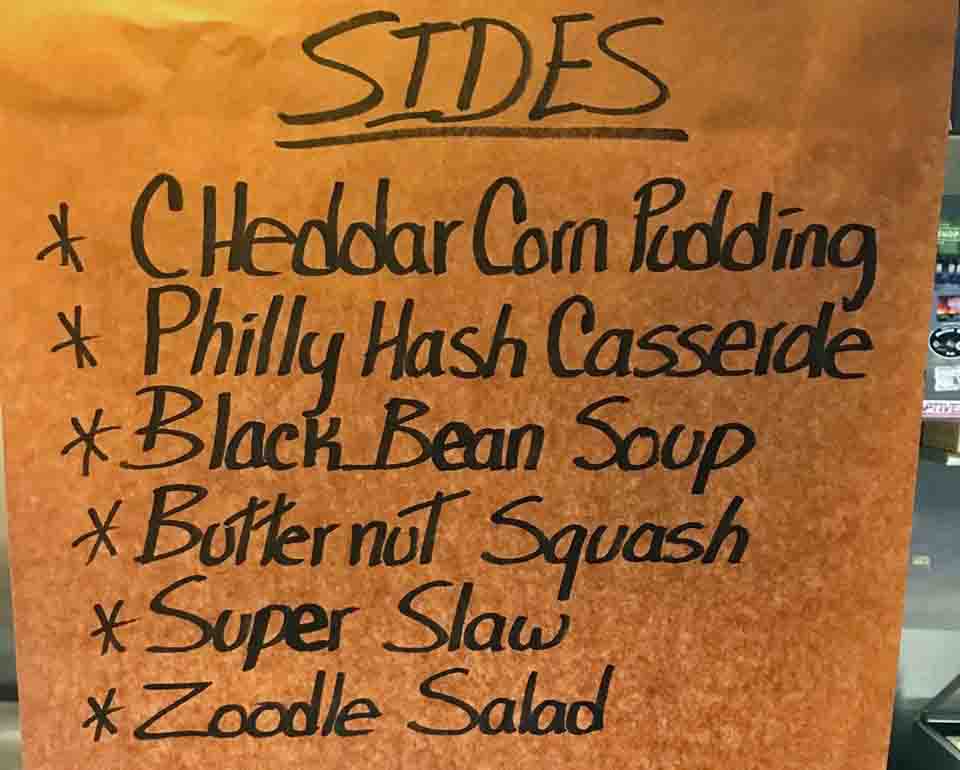 SIDES
* CHeddar Corn Pudding
* Philly Hash Casserole
* Black Bean Soup
* Butternut Squash
* Super Slaw
* Zoodle Salad